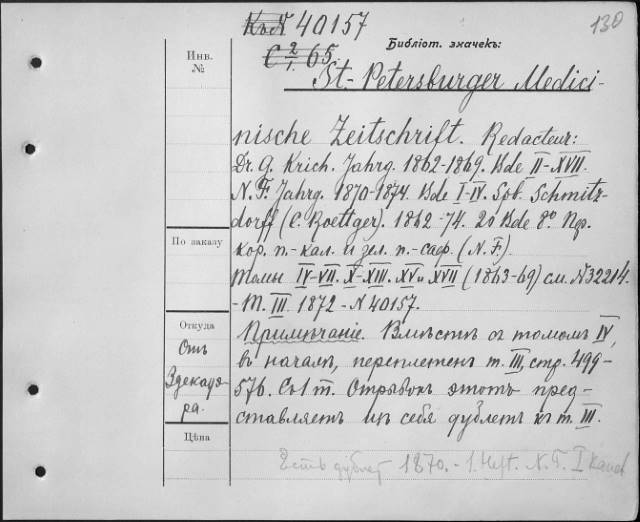 КъА 40157
130
С 2/1. 65.
Библіот. значекъ:
Инв. №
St.-Petersburger Medici-
nische Zeitschrift. Redacteur:
Dr. G. Krich. Jahrg. 1862-1869. Bde II-XVII.
N. F. Jahrg. 1870-1874. Bde I-IV. Spb. Schmitz-
dorff (C. Roettger). 1862-74. 20 Bde 8º. Пер.
кор. п.-кал. и зел. п.-саф. (N. F.).
По заказу
Томы IV-VII. X-XIII. XV и XVII (1863-69) см. N32214.
-Т. III. 1872 - N 40157.
Откуда
Отъ
Здекауэ-
ра.
Примѣчаніе. Вмѣстѣ съ томомъ IV,
въ началѣ, переплетенъ т. III, стр. 499-
576. Отрывокъ этотъ пред-
ставляетъ изъ себя дублетъ къ т. III.
Цѣна
Есть дублет 1870. - 1. Heft. N. F. I